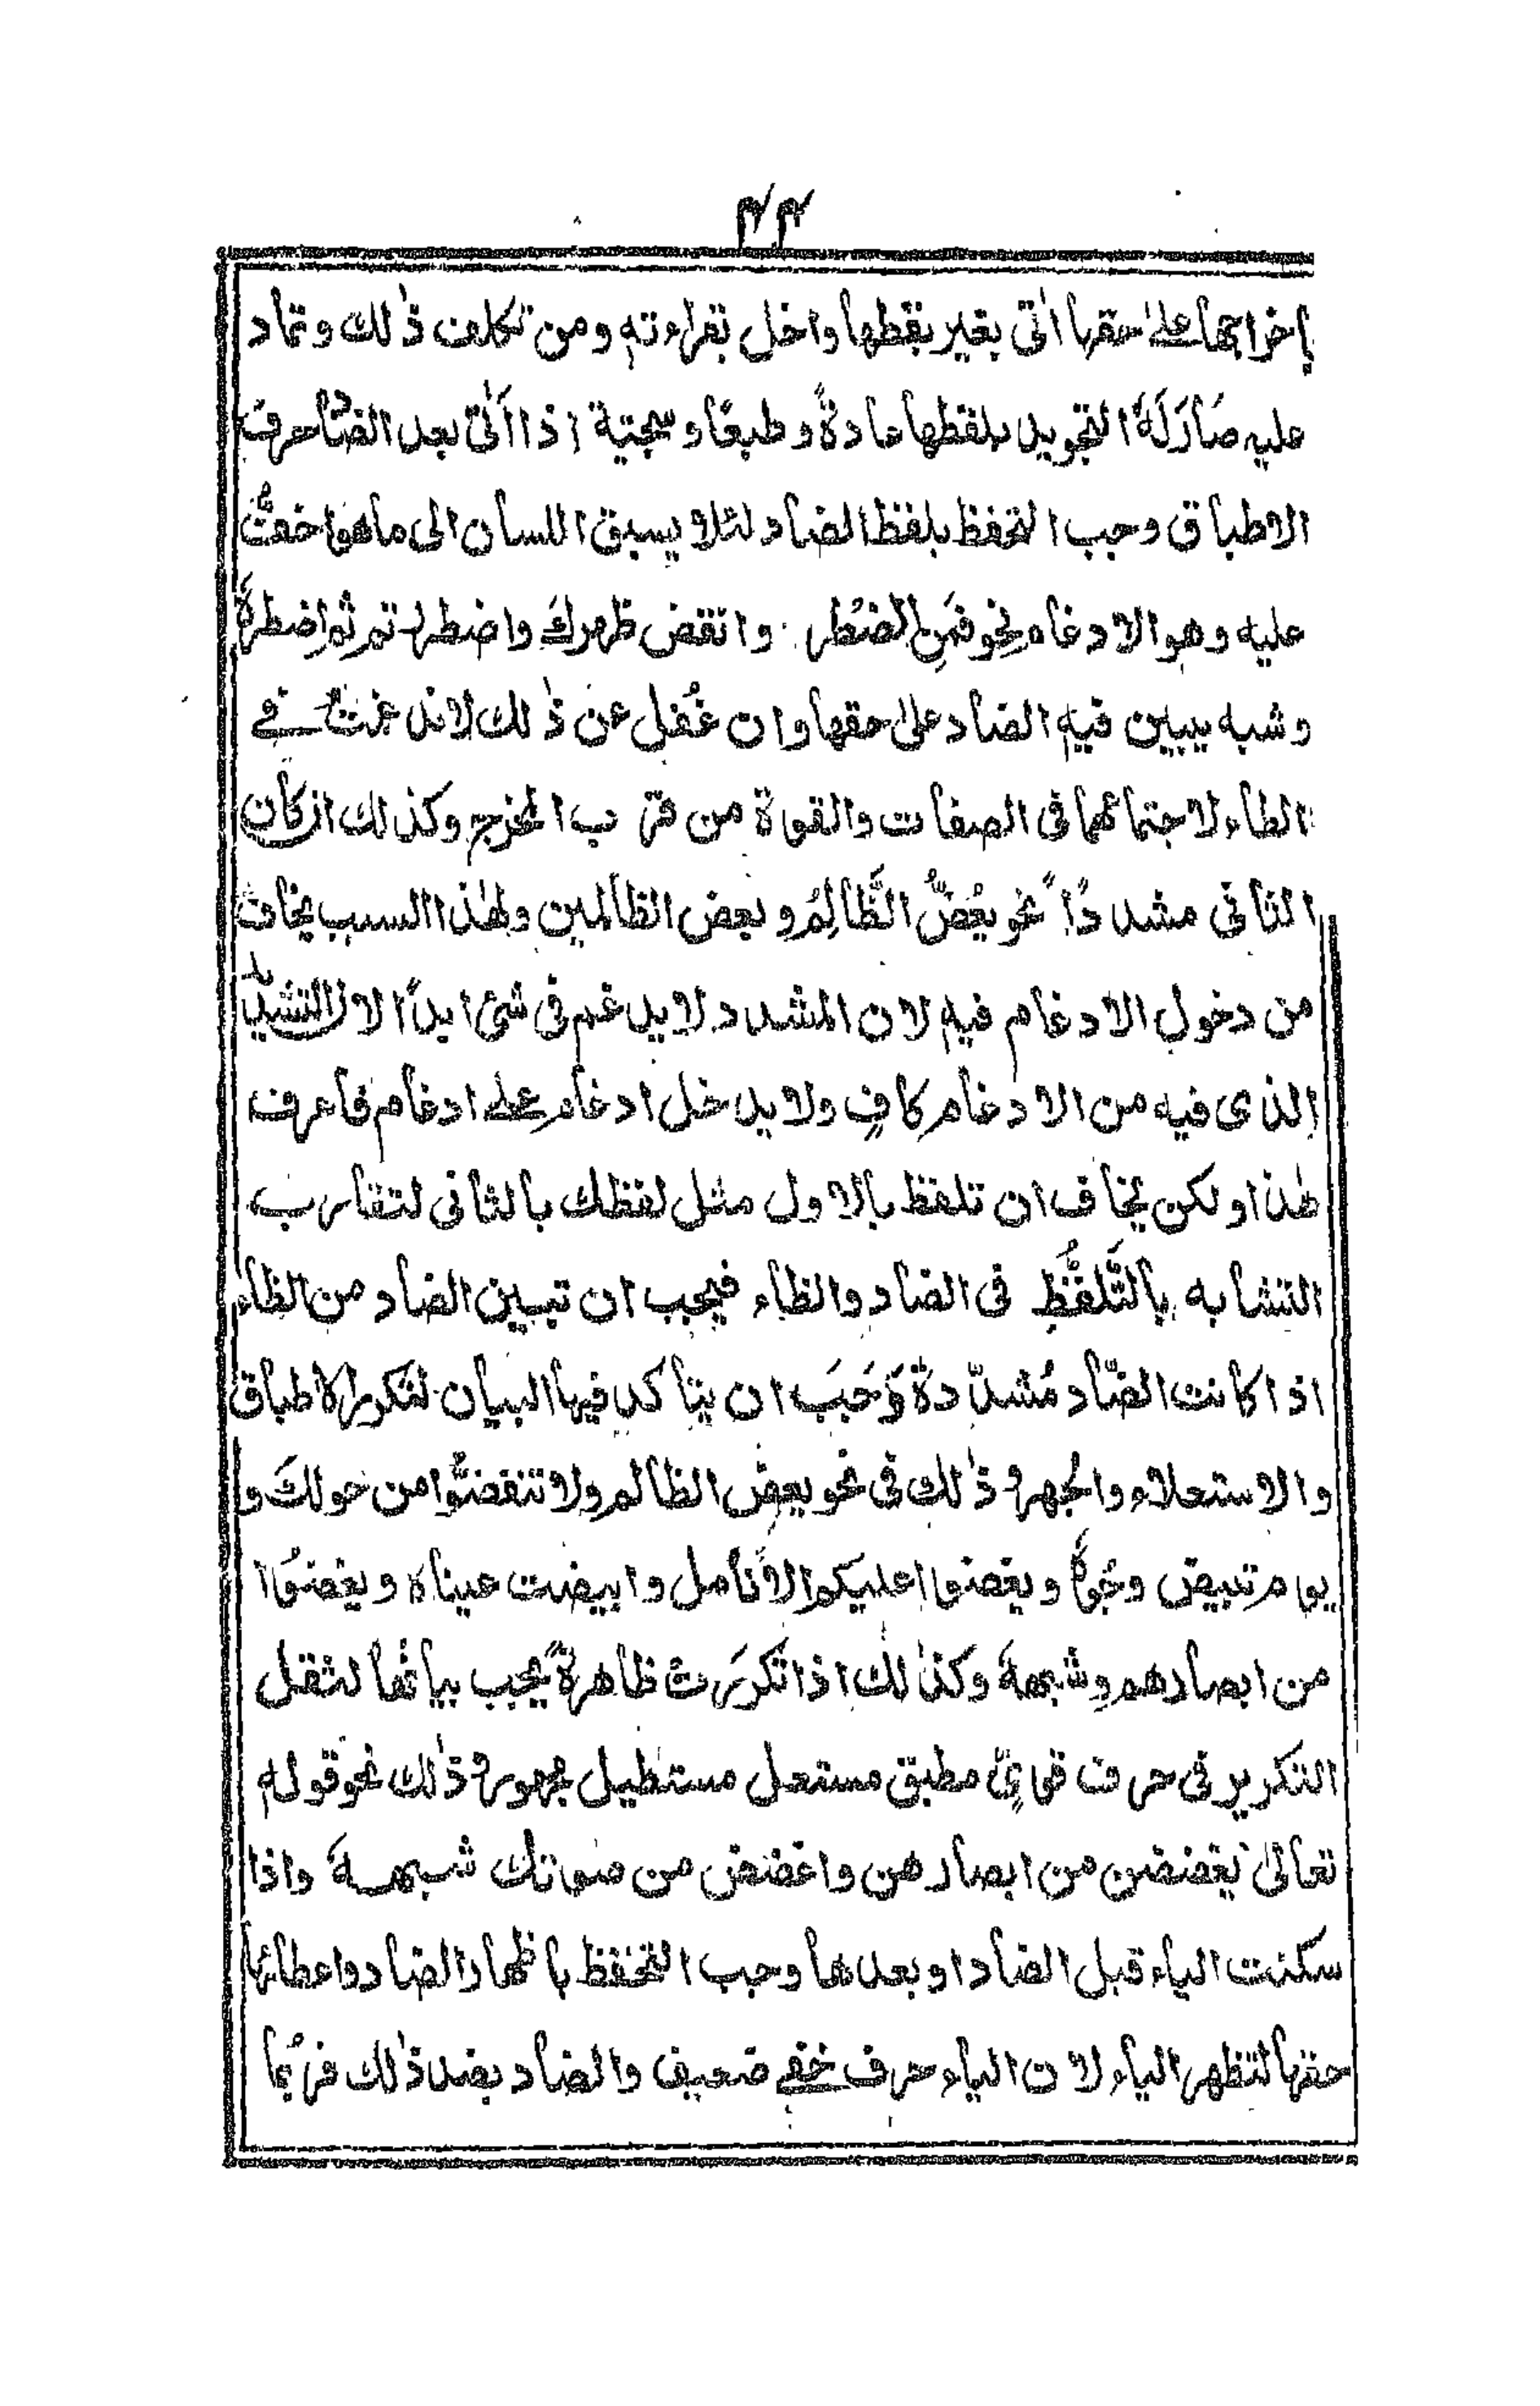 ۴۴
إخراجها على حقها اتٰى بغير بفظها واخل بقراءته ومن تكلف ذٰلك وتماد
عليه صَارَلَهٗ التجويد بلفظها عادةً وطبعًا وسجيّة اذا اَتٰى بعد الضاد حرف
الاطباق وجب التحفظ بلفظ الضاد لئلا يسبق اللسان الى ما هو اخفُّ
عليه وهو الادغام نحو فمَنِ الضطر وانقض ظهرك واضطررتم ثم اضطرهٗ
وشبه يبين فيه الضاد على حقها وان غُفل عن ذٰلك لاندغمتْ فے
الطاء لاجتماعهما فى الصفات والقوة من قرب المخرج وكذلك ان كان
الثانى مشددًا نحو يعَضُّ الظَّالِمُ وبعض الظالمين ولهٰذا السبب يخاف
من دخول الادغام فيه لان المشدد لا يدغم فى شئ ابدًا لان التشديد
الذى فيه من الادغام كافٍ ولا يدخل ادغام علے ادغام فاعرف
هٰذا ولكن يخاف ان تلفظ بالاول مثل لفظك بالثانى لتقارب
التشابه بالتَّلَفُّظِ فى الضاد والظاء فيجب ان تبيين الضاد من الظاء
اذا كانت الضّاد مُشدّدةً وَجَبَ ان يتأكد فيها البيان لتكرر الاطباق
والاستعلاء والجهر وذٰلك فى نحو يعضُّ الظالم ولا تنفضُّوا من حولكَ و
يوم تبيض وجوهٌ ويغضوا عليكم الاَنامل وابيضت عيناه ويغضُّوا
من ابصارهم وشبههٖ وكذٰلك اذا تكررت ظاهرةً يجب بيانُها لثقل
التكرير فى حرف قوىٍّ مطبق مستعل مستطيل مجهور وذٰلك نحو قوله
تعالىٰ يغضضن من ابصارهن واغضض من صوتك شبهه واذا
سكنت الياء قبل الضاد او بعدها وجب التحفظ باظهار الضاد واعطائها
حقها لتظهر الياء لان الياء حرف خفے ضعيف والضاد بضد ذٰلك فربما